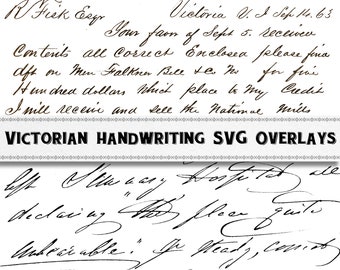 R Fisk Esqr Victoria V. I Sep 14. 63
Your favor of Sept 5. received
Contents all correct Enclosed please find
dft on Men Falkner Bell & Co for five
Hundred dollars which place to my Credit
I will receive and sell the National Mills
VICTORIAN HANDWRITING SVG OVERLAYS
left Seminary Hospital all
declaring the place quite
unbearable." Yr steady,